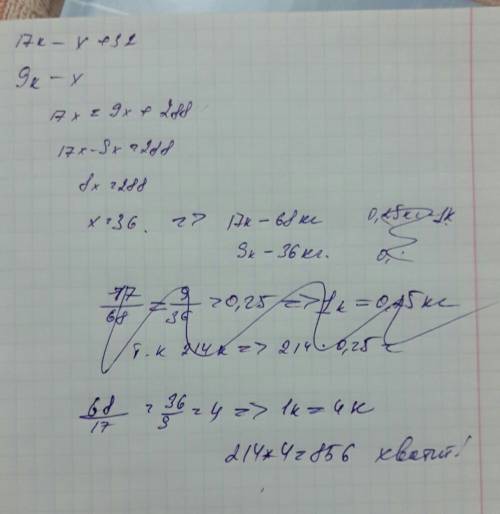 17к - x + 32
9к - x
17x = 9x + 288
17x - 9x = 288
8x = 288
x = 36. => 17к - 68кг
9к - 36кг.
0,
17/68 = 9/36 = 0,25 => 1к = 0,25кг
т.к 214к => 214 · 0,25 =
68/17 = 36/9 = 4 => 1к = 4к
214*4=856 хватит!